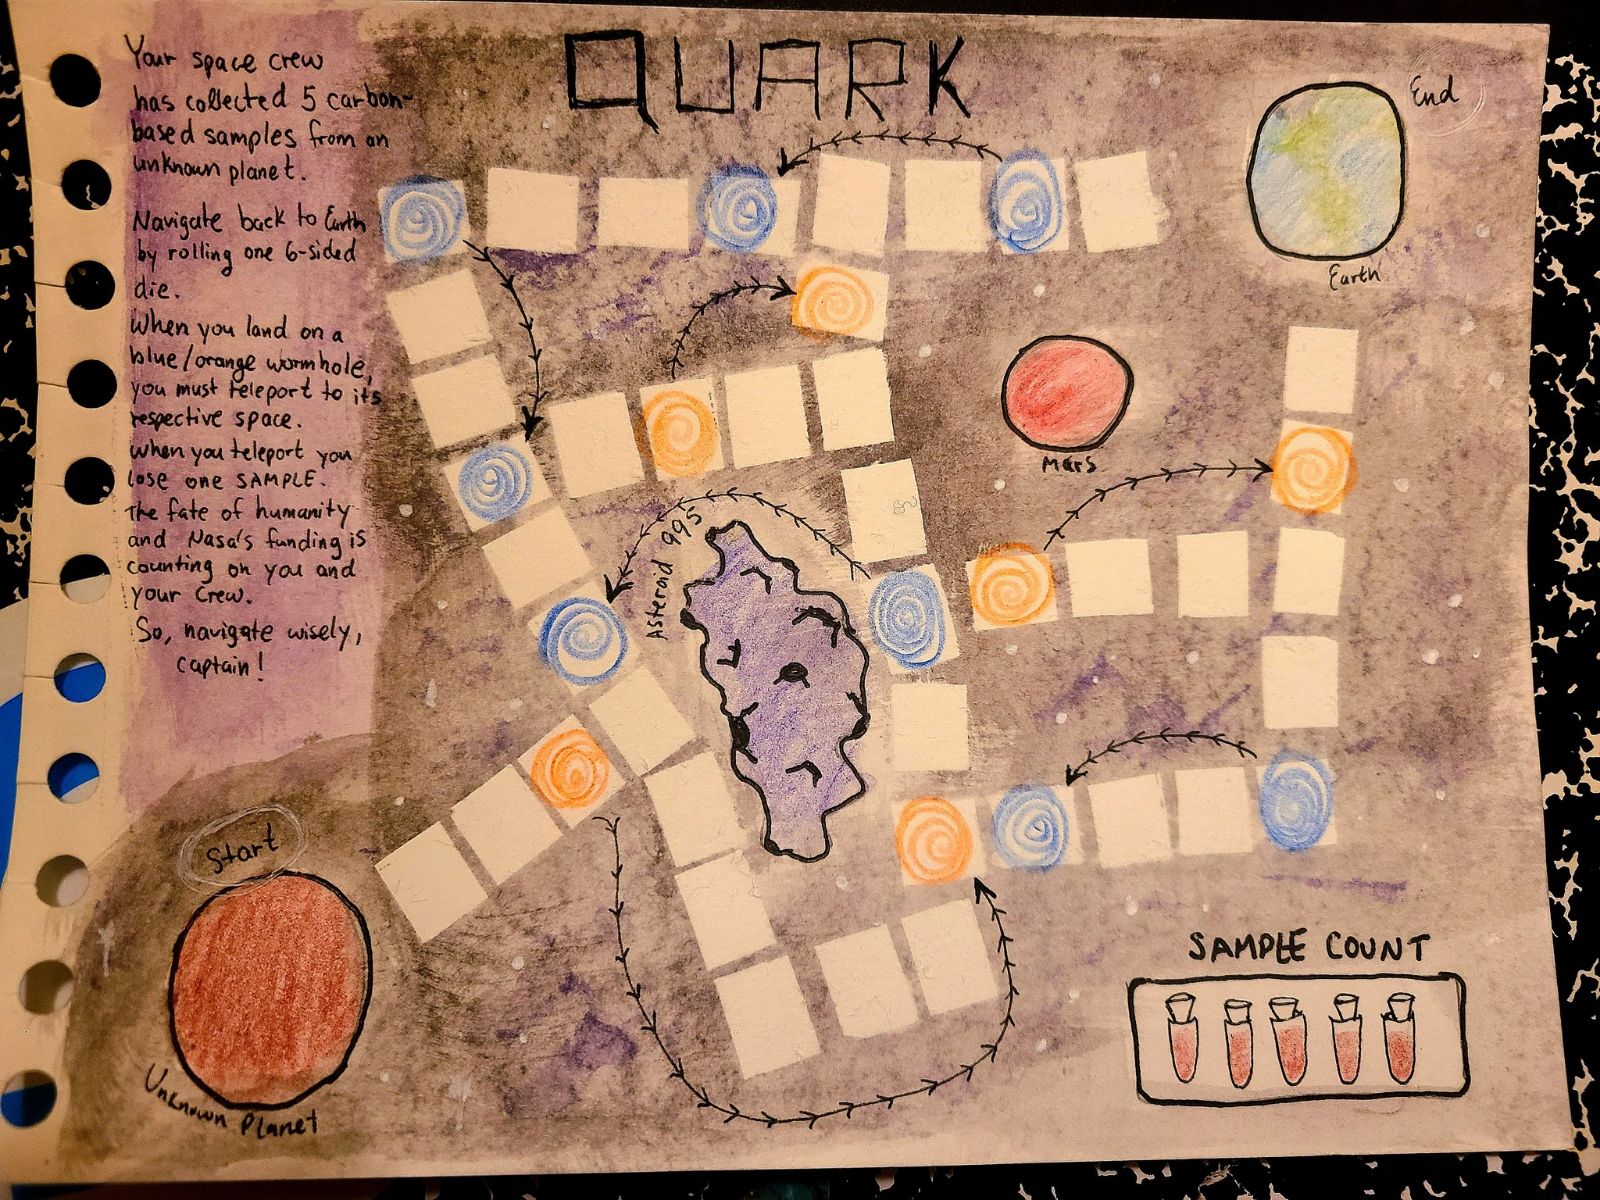 QUARK
Your space crew
has collected 5 carbon-
based samples from an
unknown planet.
Navigate back to Earth
by rolling one 6-sided
die.
When you land on a
blue/orange wormhole,
you must teleport to its
respective space.
When you teleport you
lose one SAMPLE.
The fate of humanity
and Nasa's funding is
counting on you and
your crew.
So, navigate wisely,
captain!
End
Earth
Mars
Asteroid 995
Start
Unknown Planet
SAMPLE COUNT